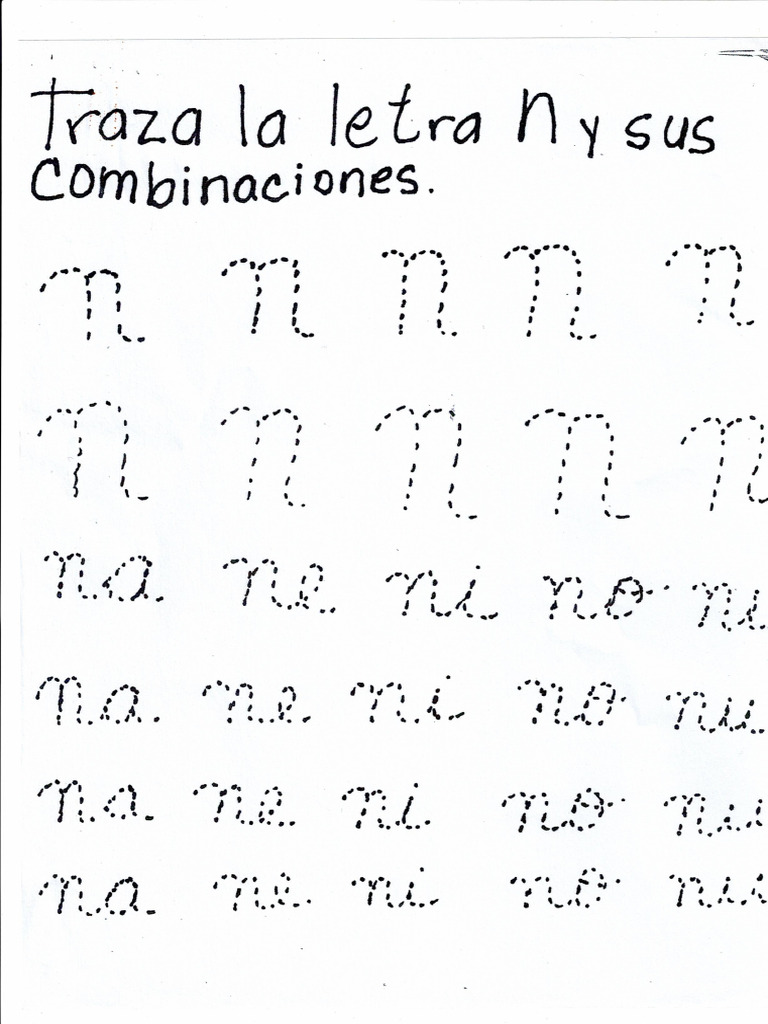 Traza la letra n y sus
combinaciones.
n n n n n
n n n n n
na ne ni no nu
na ne ni no nu
na ne ni no nu
na ne ni no nu